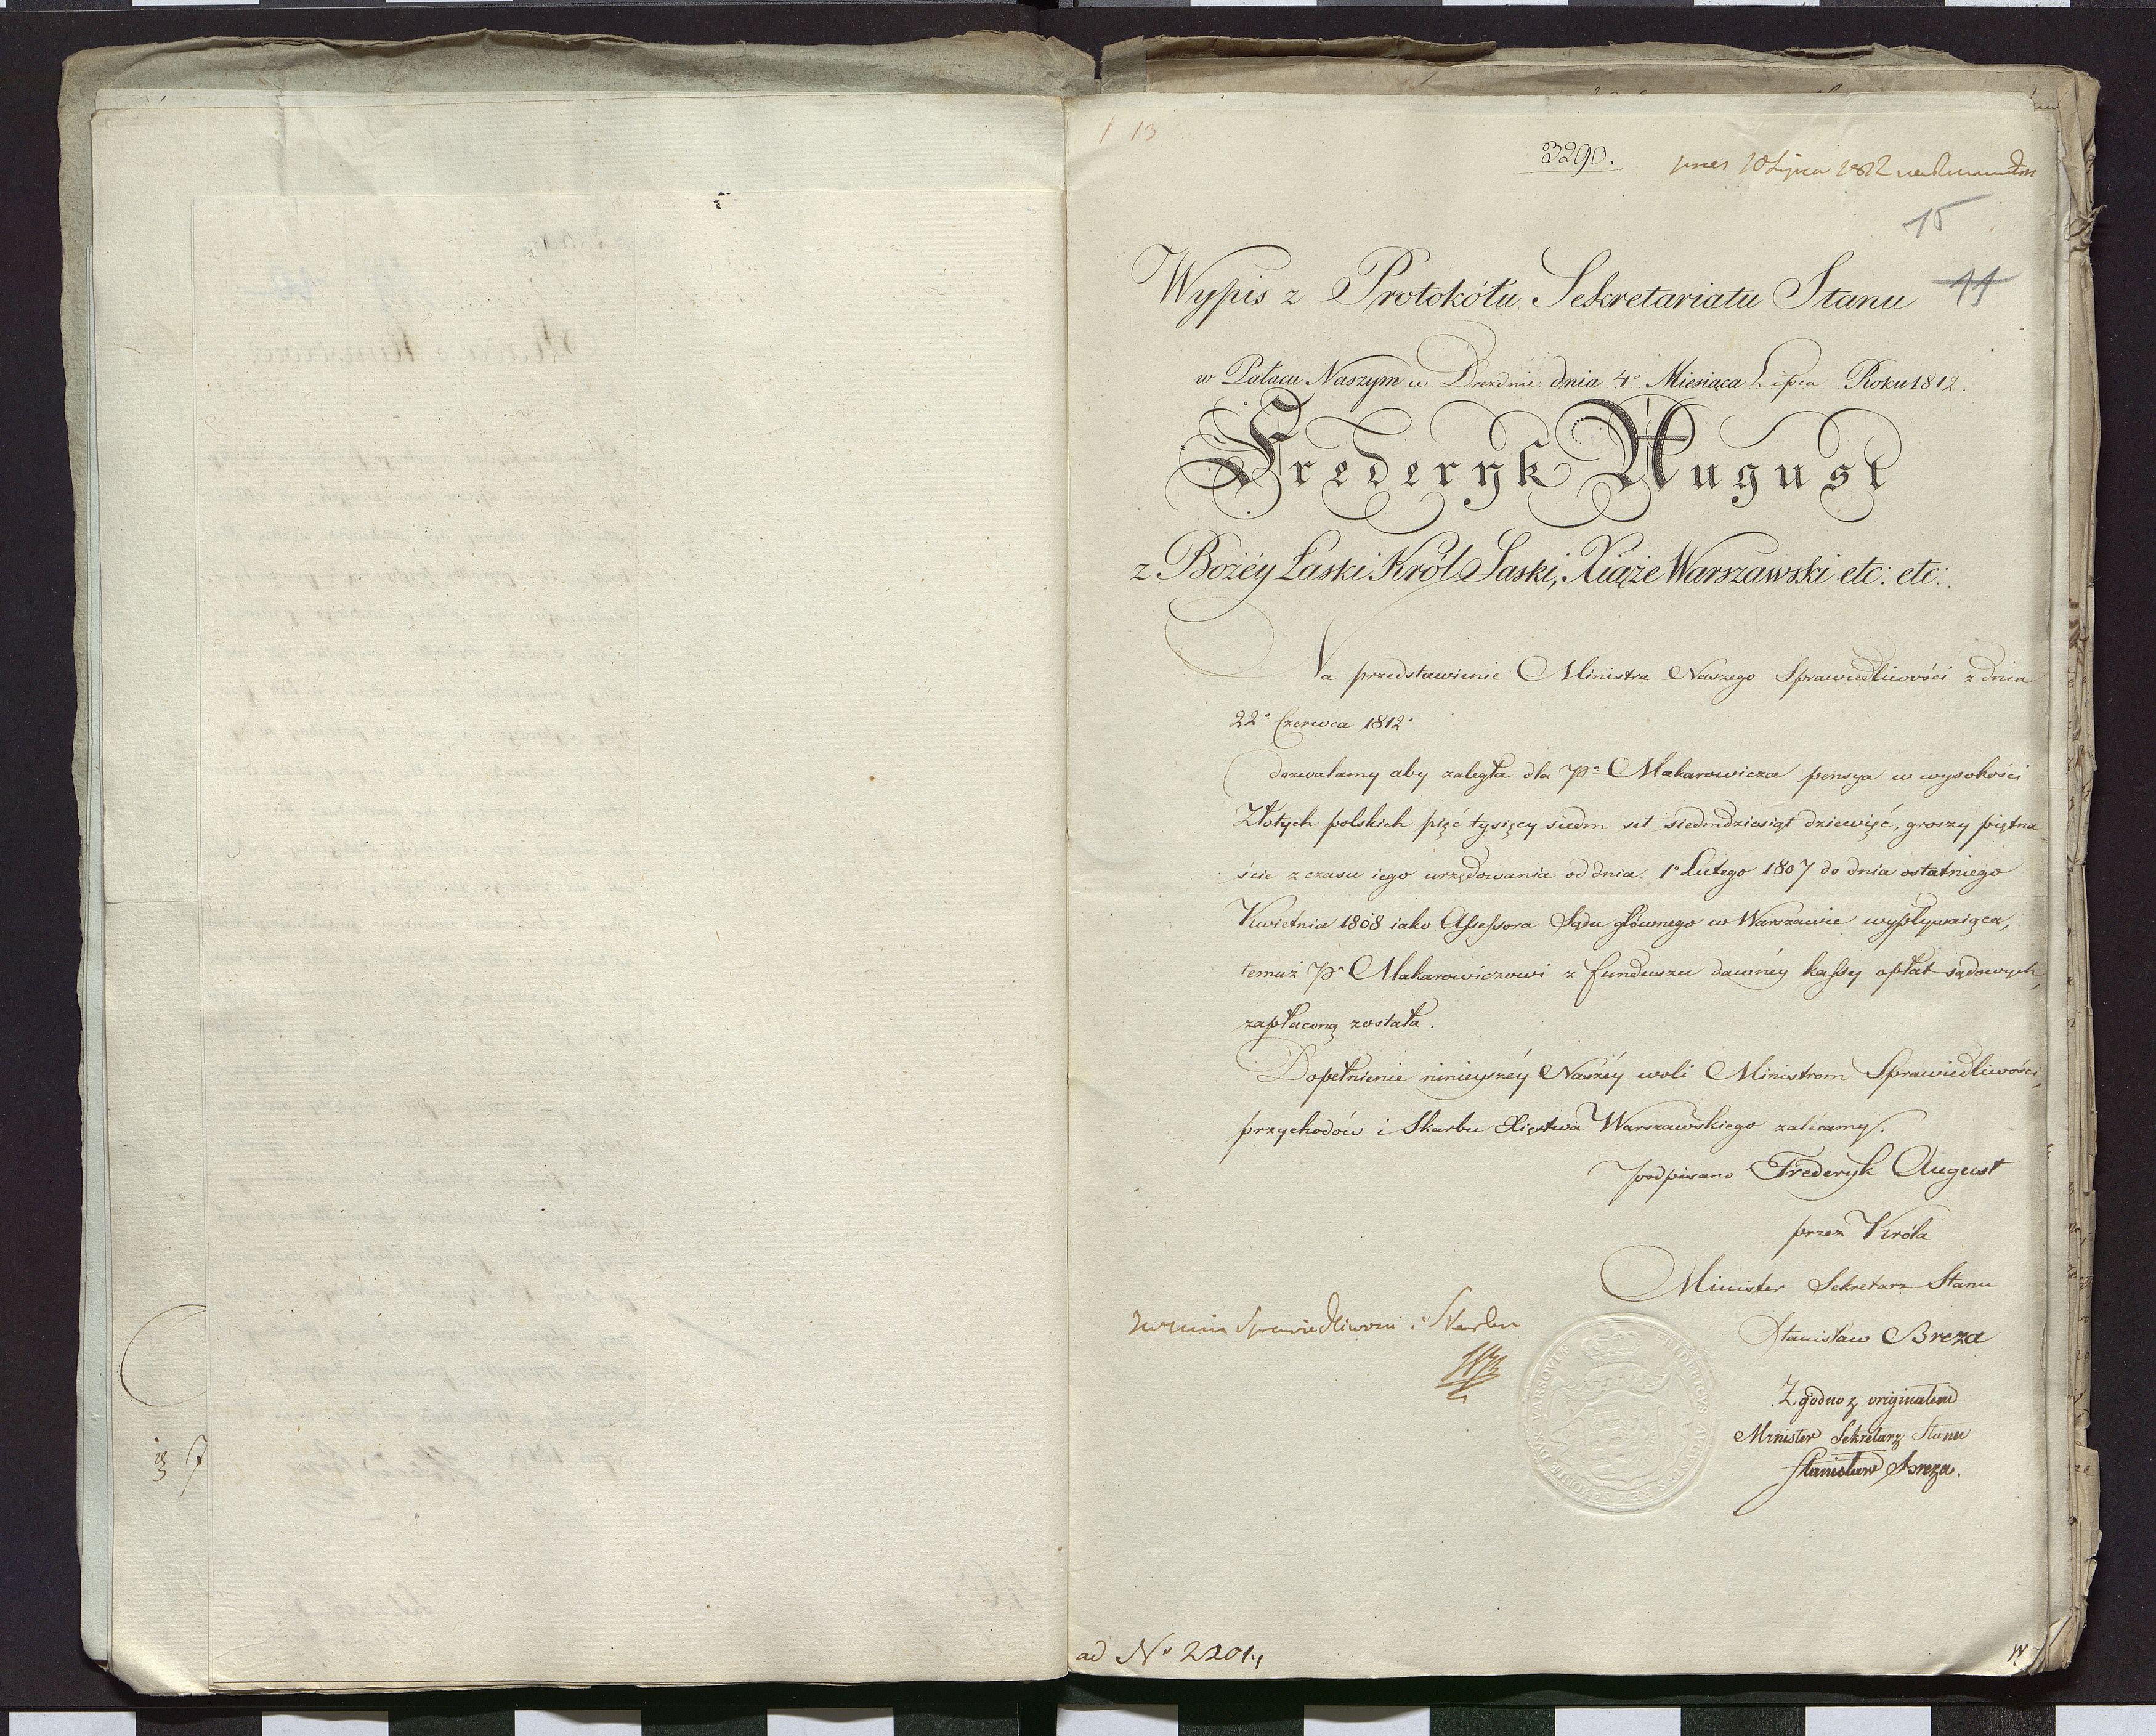 13
3290.
15
11
Wypis z Protokółu Sekretariatu Stanu
w Pałacu Naszym w Dreznie dnia 4º Miesiąca Lipca Roku 1812.
Frederyk August
z Bożéy Łaski Król Saski, Xiąże Warszawski etc: etc:
Na przedstawienie Ministra Naszego Sprawiedliwości z dnia
22º Czerwca 1812º
dozwalamy aby zaległa dla Pª Makarowicza pensya w wysokości
Złotych polskich pięć tysięcy siedm set siedmdziesiąt dziewięć, groszy piętna-
ście z czasu iego urzędowania od dnia 1º Lutego 1807 do dnia ostatniego
Kwietnia 1808 iako Assessora Sądu głównego w Warszawie wypływaiąca,
temuż Pª Makarowiczowi z funduszu dawnéy kassy opłat sądowych,
zapłaconą została.
Dopełnienie ninieyszéy Naszéy woli Ministrom Sprawiedliwości,
przychodów i Skarbu Xięstwa Warszawskiego zalécamy.
podpisano Frederyk August
przez Króla
Minister Sekretarz Stanu
Stanisław Breza
Sprawiedliwosci i Skarbu
Zgodno z originałem
Minister Sekretarz Stanu
Stanisław Breza.
FRIDERICUS AUGUSTUS REX SAXONIÆ DUX VARSOVIÆ
ad Nº 2201.